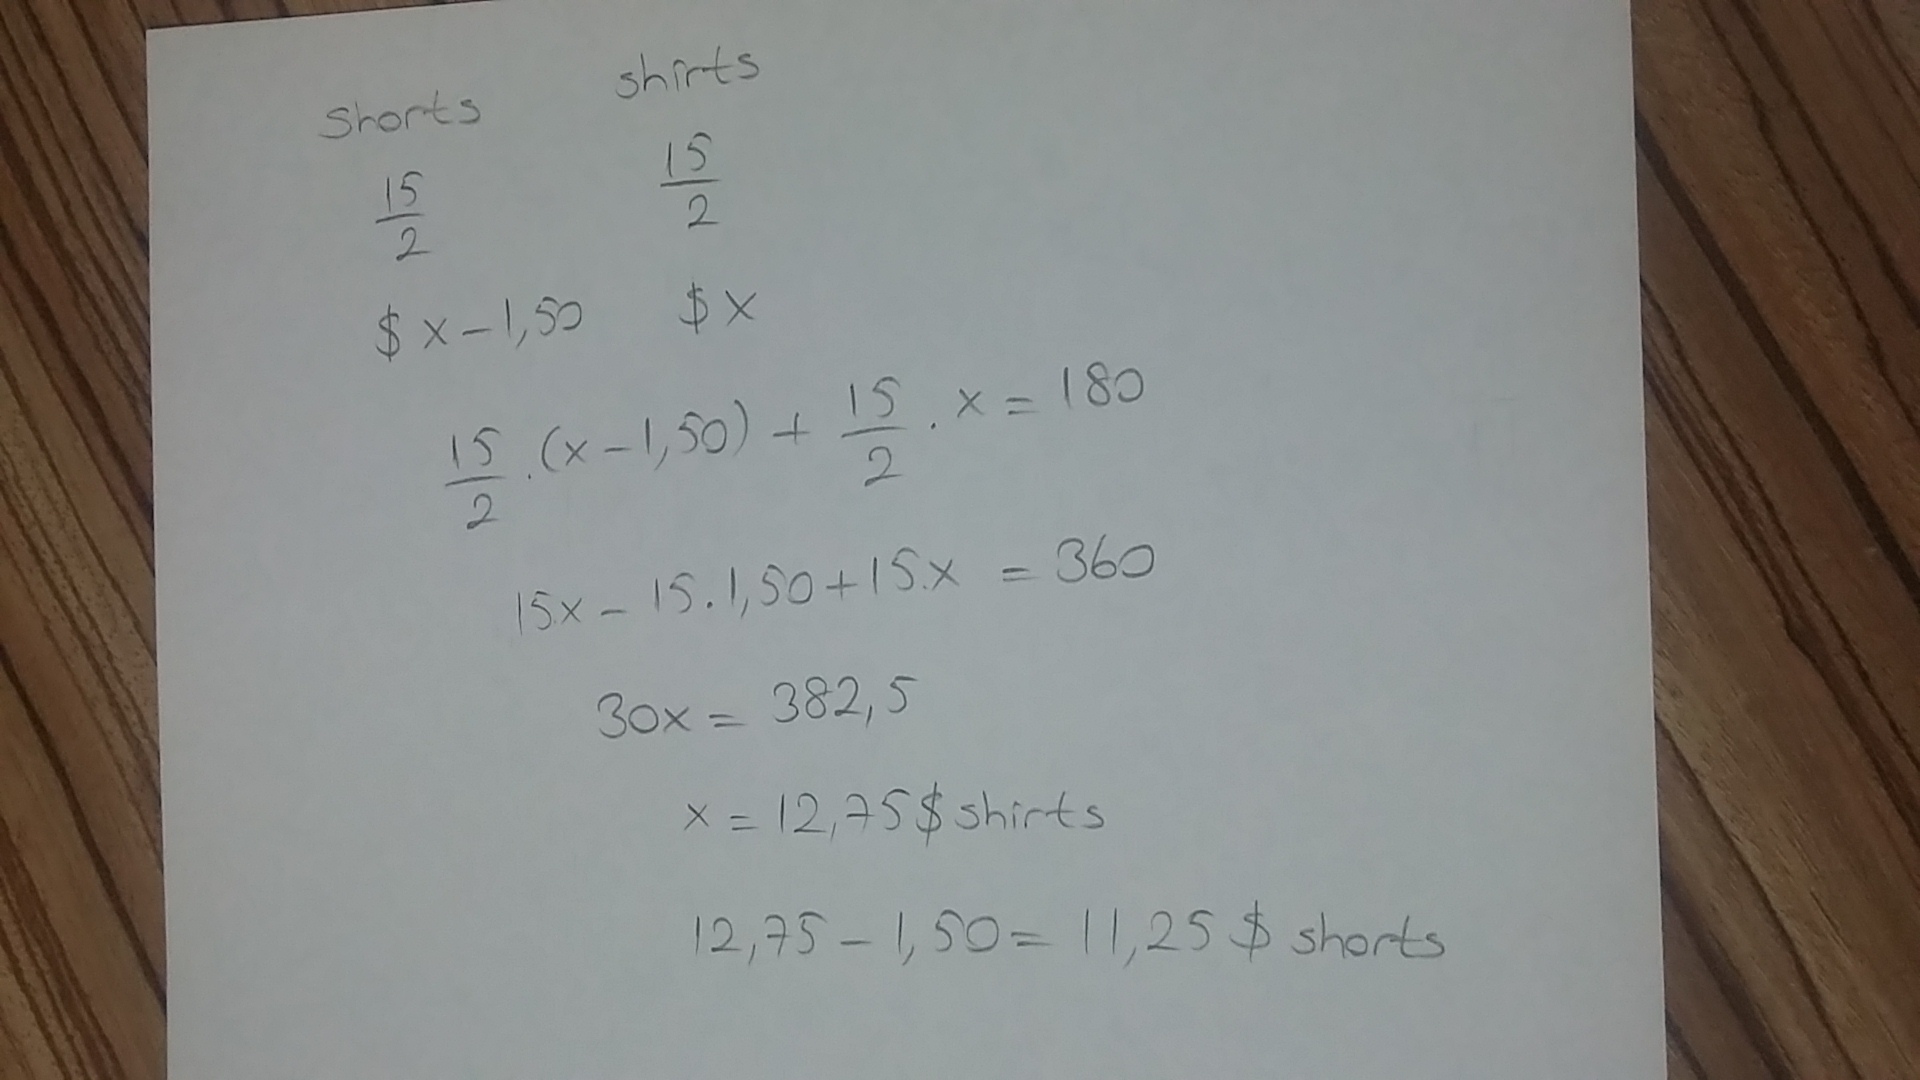 shorts shirts
15/2 15/2
$ x - 1,50 $ x
15/2 . (x - 1,50) + 15/2 . x = 180
15x - 15.1,50 + 15.x = 360
30x = 382,5
x = 12,75 $ shirts
12,75 - 1,50 = 11,25 $ shorts